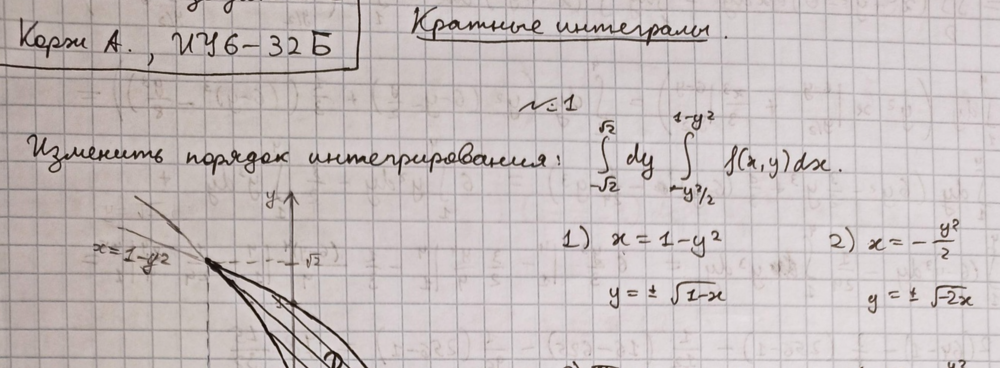 Корж А., ИУ6-32Б
Кратные интегралы.
№1
Изменить порядок интегрирования: ∫_{-√2}^{√2} dy ∫_{-y²/2}^{1-y²} f(x,y)dx.
1) x = 1-y²
2) x = -y²/2
y = ± √(1-x)
y = ± √(-2x)
y
x=1-y²
√2
D